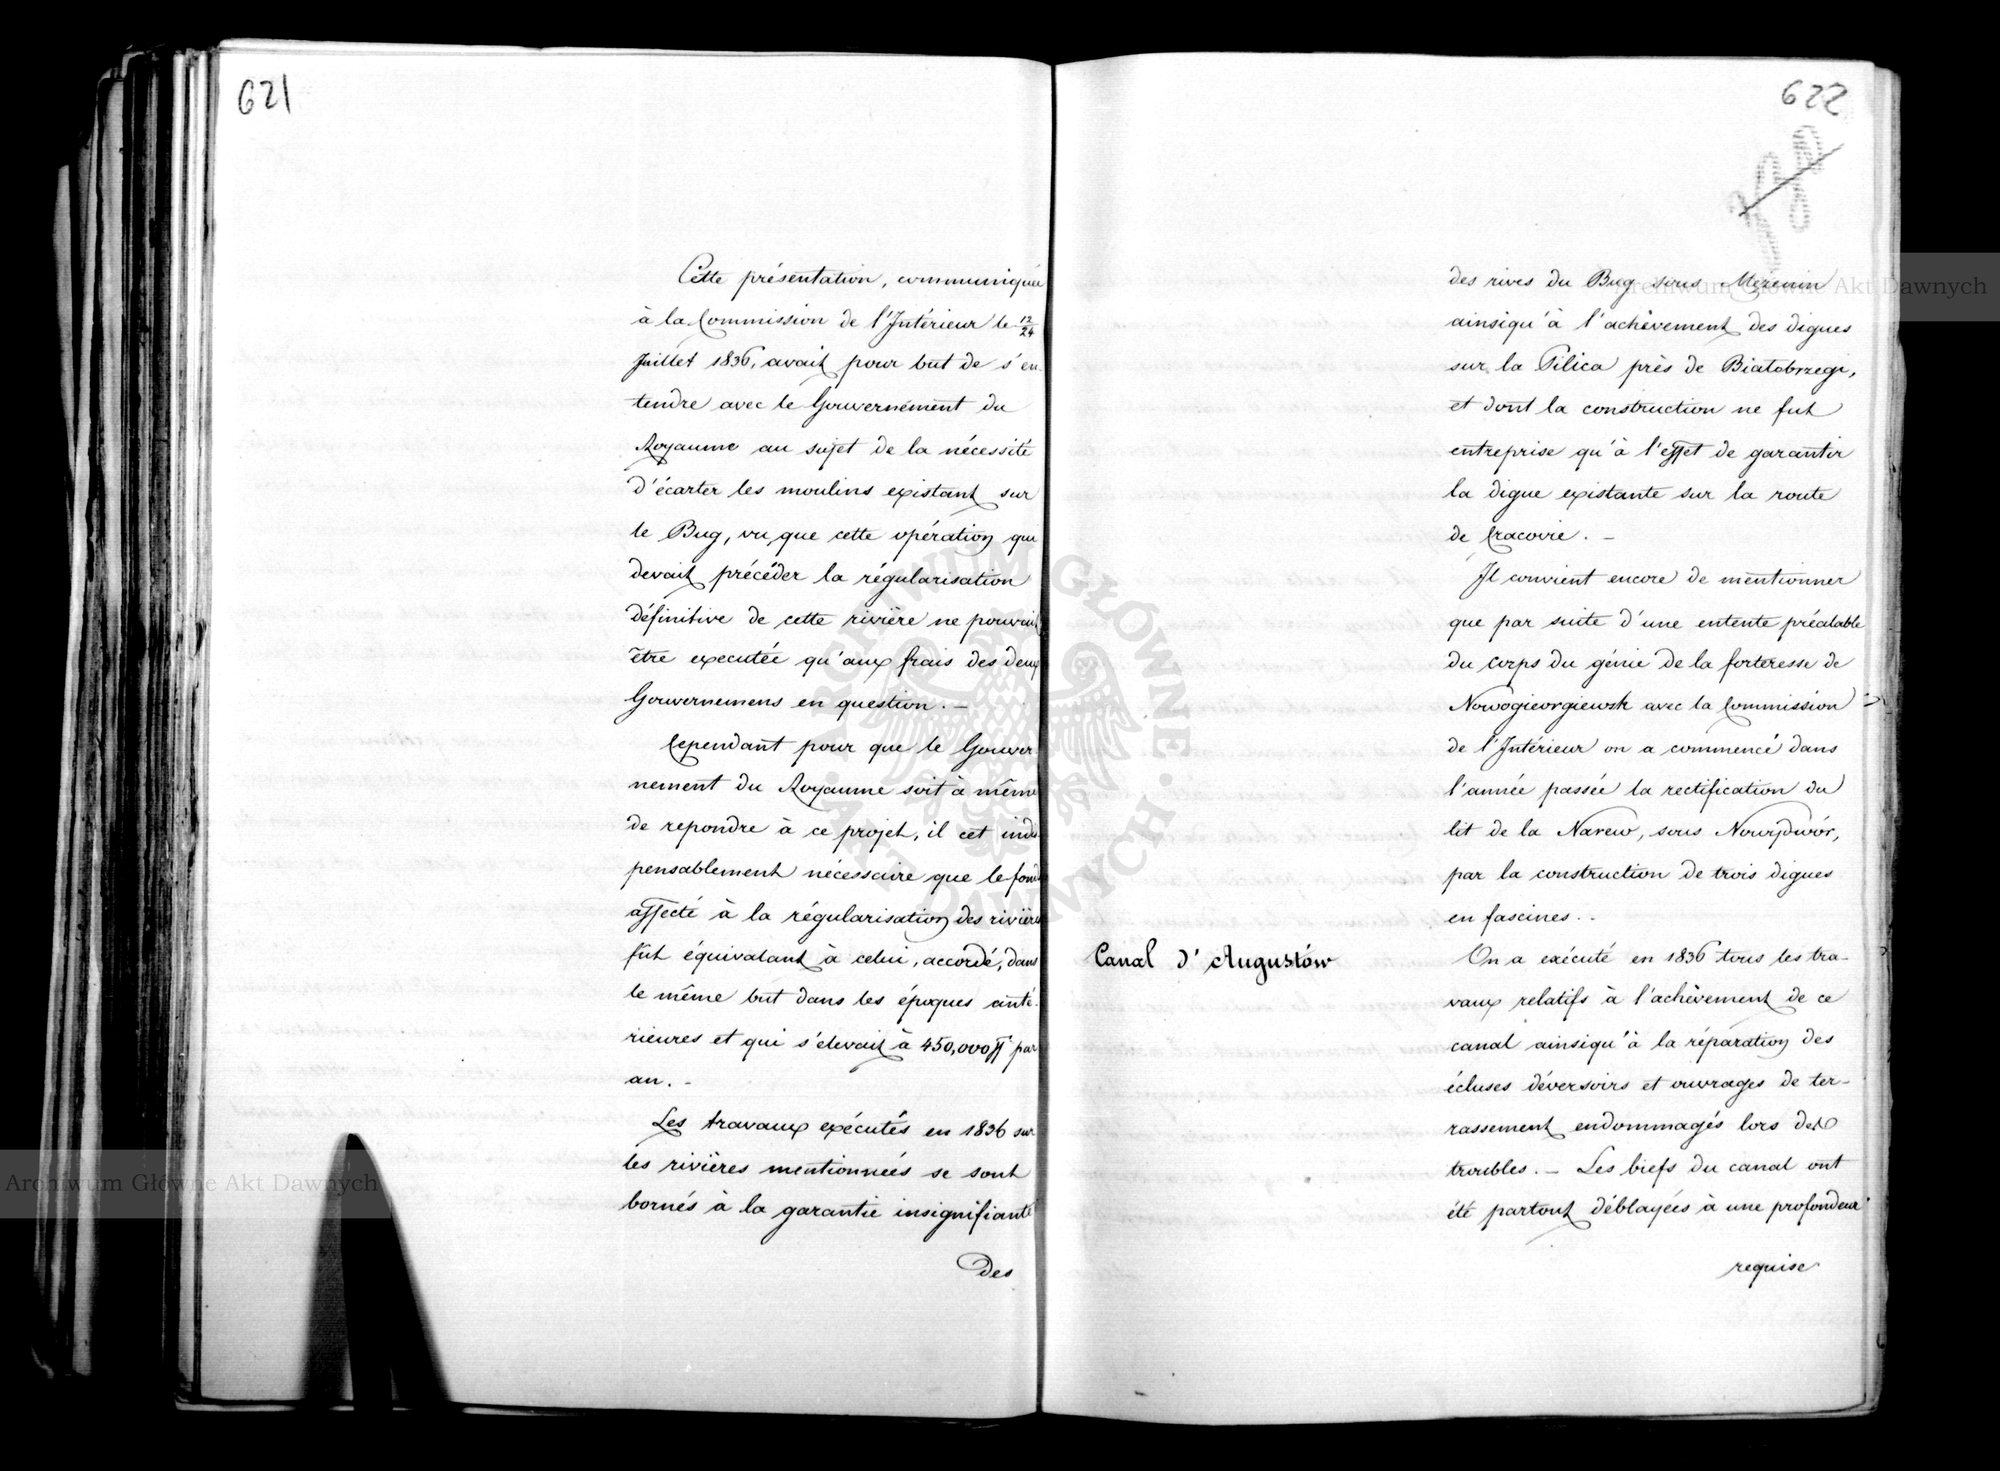 621
Cette présentation, communiquée
à la Commission de l'Intérieur le 12/24
Juillet 1836, avait pour but de s'en-
tendre avec le Gouvernement du
Royaume au sujet de la nécessité
d'écarter les moulins existant sur
le Bug, vu que cette opération qui
devait précéder la régularisation
définitive de cette rivière ne pouvait
être executée qu'aux frais des deux
Gouvernemens en question. —
Cependant pour que le Gouver-
nement du Royaume soit à même
de repondre à ce projet, il est indis
pensablement nécessaire que le fond
affecté à la régularisation des rivières
fut équivalant à celui, accordé, dans
le même but dans les époques anté-
rieures et qui s'elevait à 450,000 fl par
an. -
Les travaux exécutés en 1836 sur
les rivières mentionnées se sont
bornés à la garantie insignifiante
Des
622
des rives du Bug sous
ainsiqu'à l'achèvement des digues
sur la Pilica près de Białobrzegi,
et dont la construction ne fut
entreprise qu'à l'effet de garantir
la digue existante sur la route
de Cracovie. —
Il convient encore de mentionner
que par suite d'une entente préalable
du corps du génie de la forteresse de
Nowogieorgiewsk avec la Commission
de l'Intérieur on a commencé dans
l'année passée la rectification du
lit de la Narew, sous Nowydwór,
par la construction de trois digues
en fascines. -
Canal d'Augustów
On a exécuté en 1836 tous les tra-
vaux relatifs à l'achèvement de ce
canal ainsiqu'à la réparation des
écluses déversoirs et ouvrages de ter-
rassement endommagés lors des
troubles. — Les biefs du canal ont
été partout déblayées à une profondeur
requise
Archiwum Główne Akt Dawnych
Archiwum Główne Akt Dawnych
ARCHIWUM GŁÓWNE AKT DAWNYCH